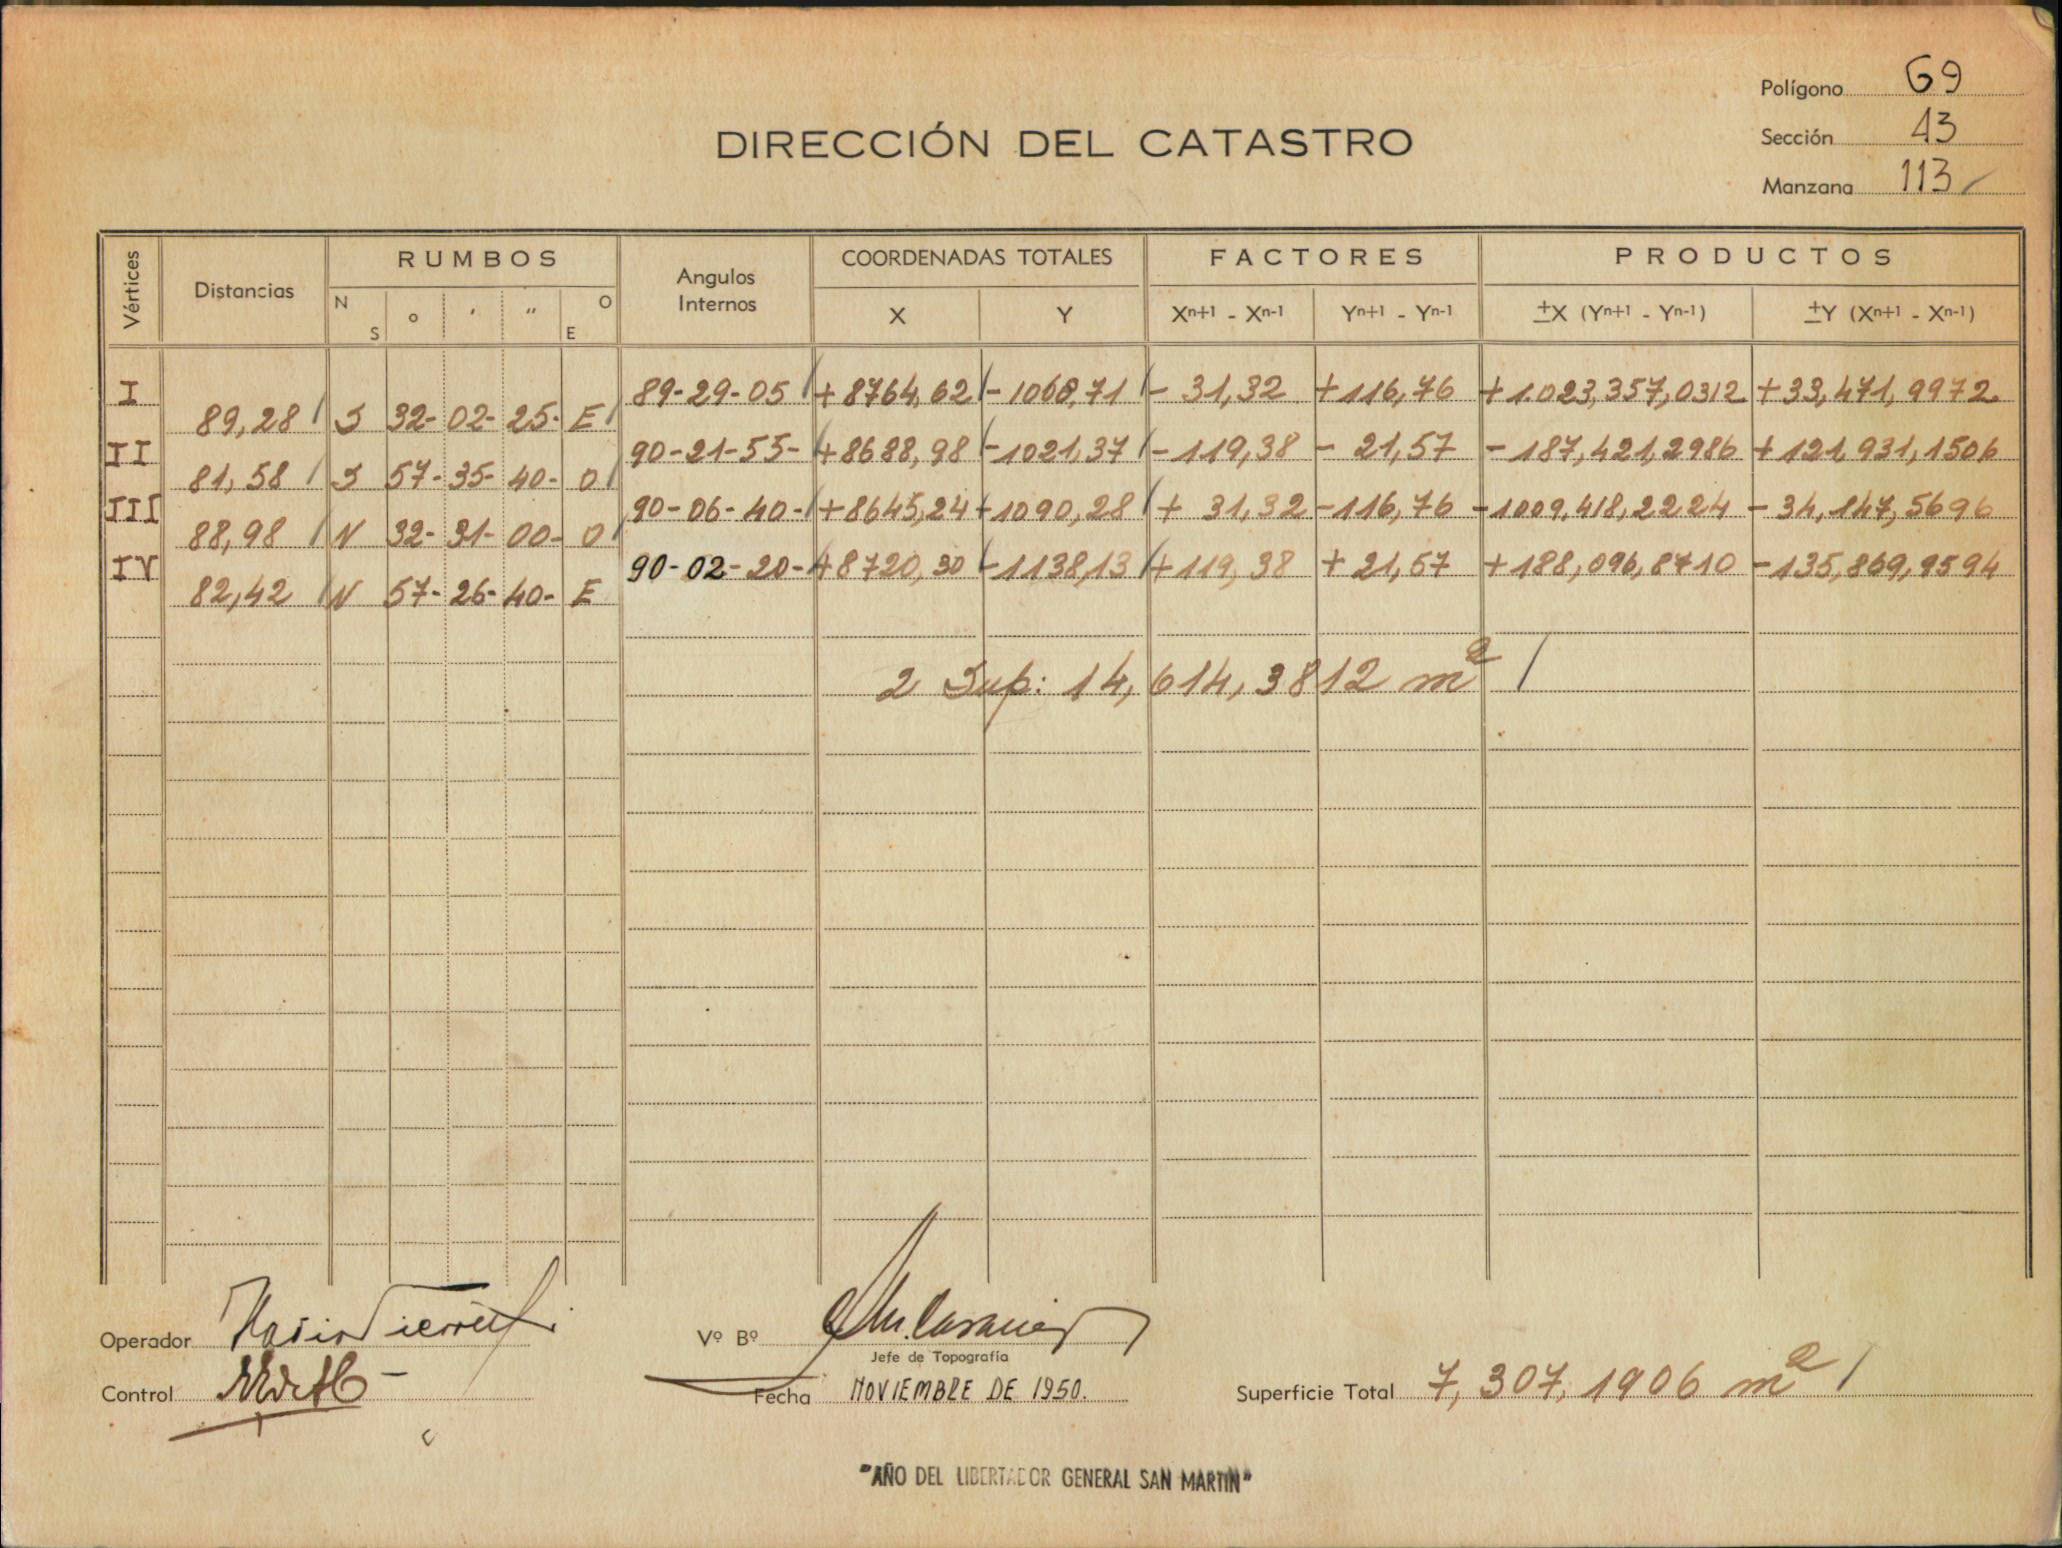 Polígono 69
DIRECCIÓN DEL CATASTRO
Sección 13
Manzana 113
Vértices Distancias RUMBOS Angulos Internos COORDENADAS TOTALES FACTORES PRODUCTOS
N S ° ' " O E X Y Xn+1 - Xn-1 Yn+1 - Yn-1 ±X (Yn+1 - Yn-1) ±Y (Xn+1 - Xn-1)
I 89-29-05 +8764,62 -1068,71 - 31,32 +116,76 +1.023,357,0312 +33,471,9972
89,28 S 32- 02- 25- E
II 90-21-55- +8688,98 -1021,37 -119,38 - 21,57 -187,421,2986 +121,931,1506
81,58 S 57- 35- 40- O
III 90-06-40- +8645,24 -1090,28 + 31,32 -116,76 -1009,418,2224 -34,147,5696
88,98 N 32- 31- 00- O
IV 90-02-20- +8720,30 -1138,13 +119,38 +21,57 +188,096,8710 -135,869,9594
82,42 N 57- 26- 40- E
2 Sup: 14,614,3812 m2
Operador
Vº Bº
Jefe de Topografía
Control
Fecha NOVIEMBRE DE 1950.
Superficie Total 7,307,1906 m2
"AÑO DEL LIBERTADOR GENERAL SAN MARTIN"